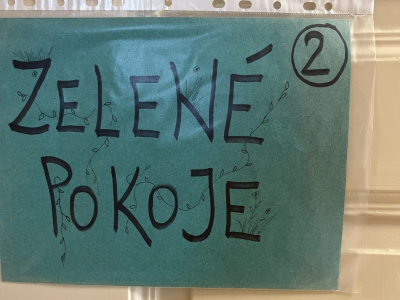 2
ZELENÉ
POKOJE